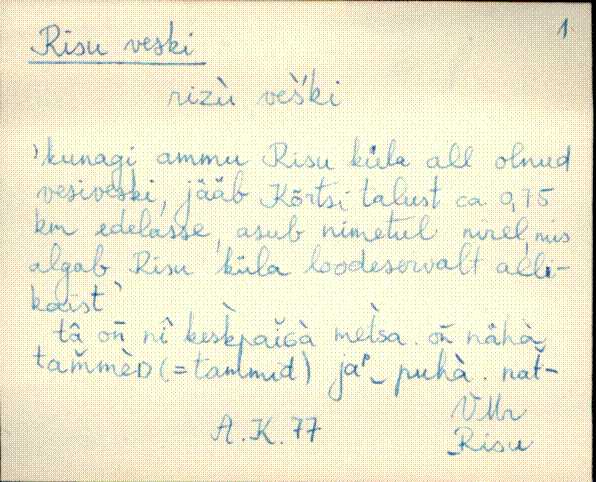 1
Risu veski
rizù veš́ki
'kunagi ammu Risu küla all olnud
vesiveski, jääb Kõrtsi talust ca 0,75
km edelasse, asub nimetul nirel, mis
algab Risu küla loodeservalt alli-
kaist'
tâ oñ nî keskpaiGà metsa. oñ nähà
tam̆mèD (= tammid) ja puhà. nat-
A.K. 77
VMr
Risu